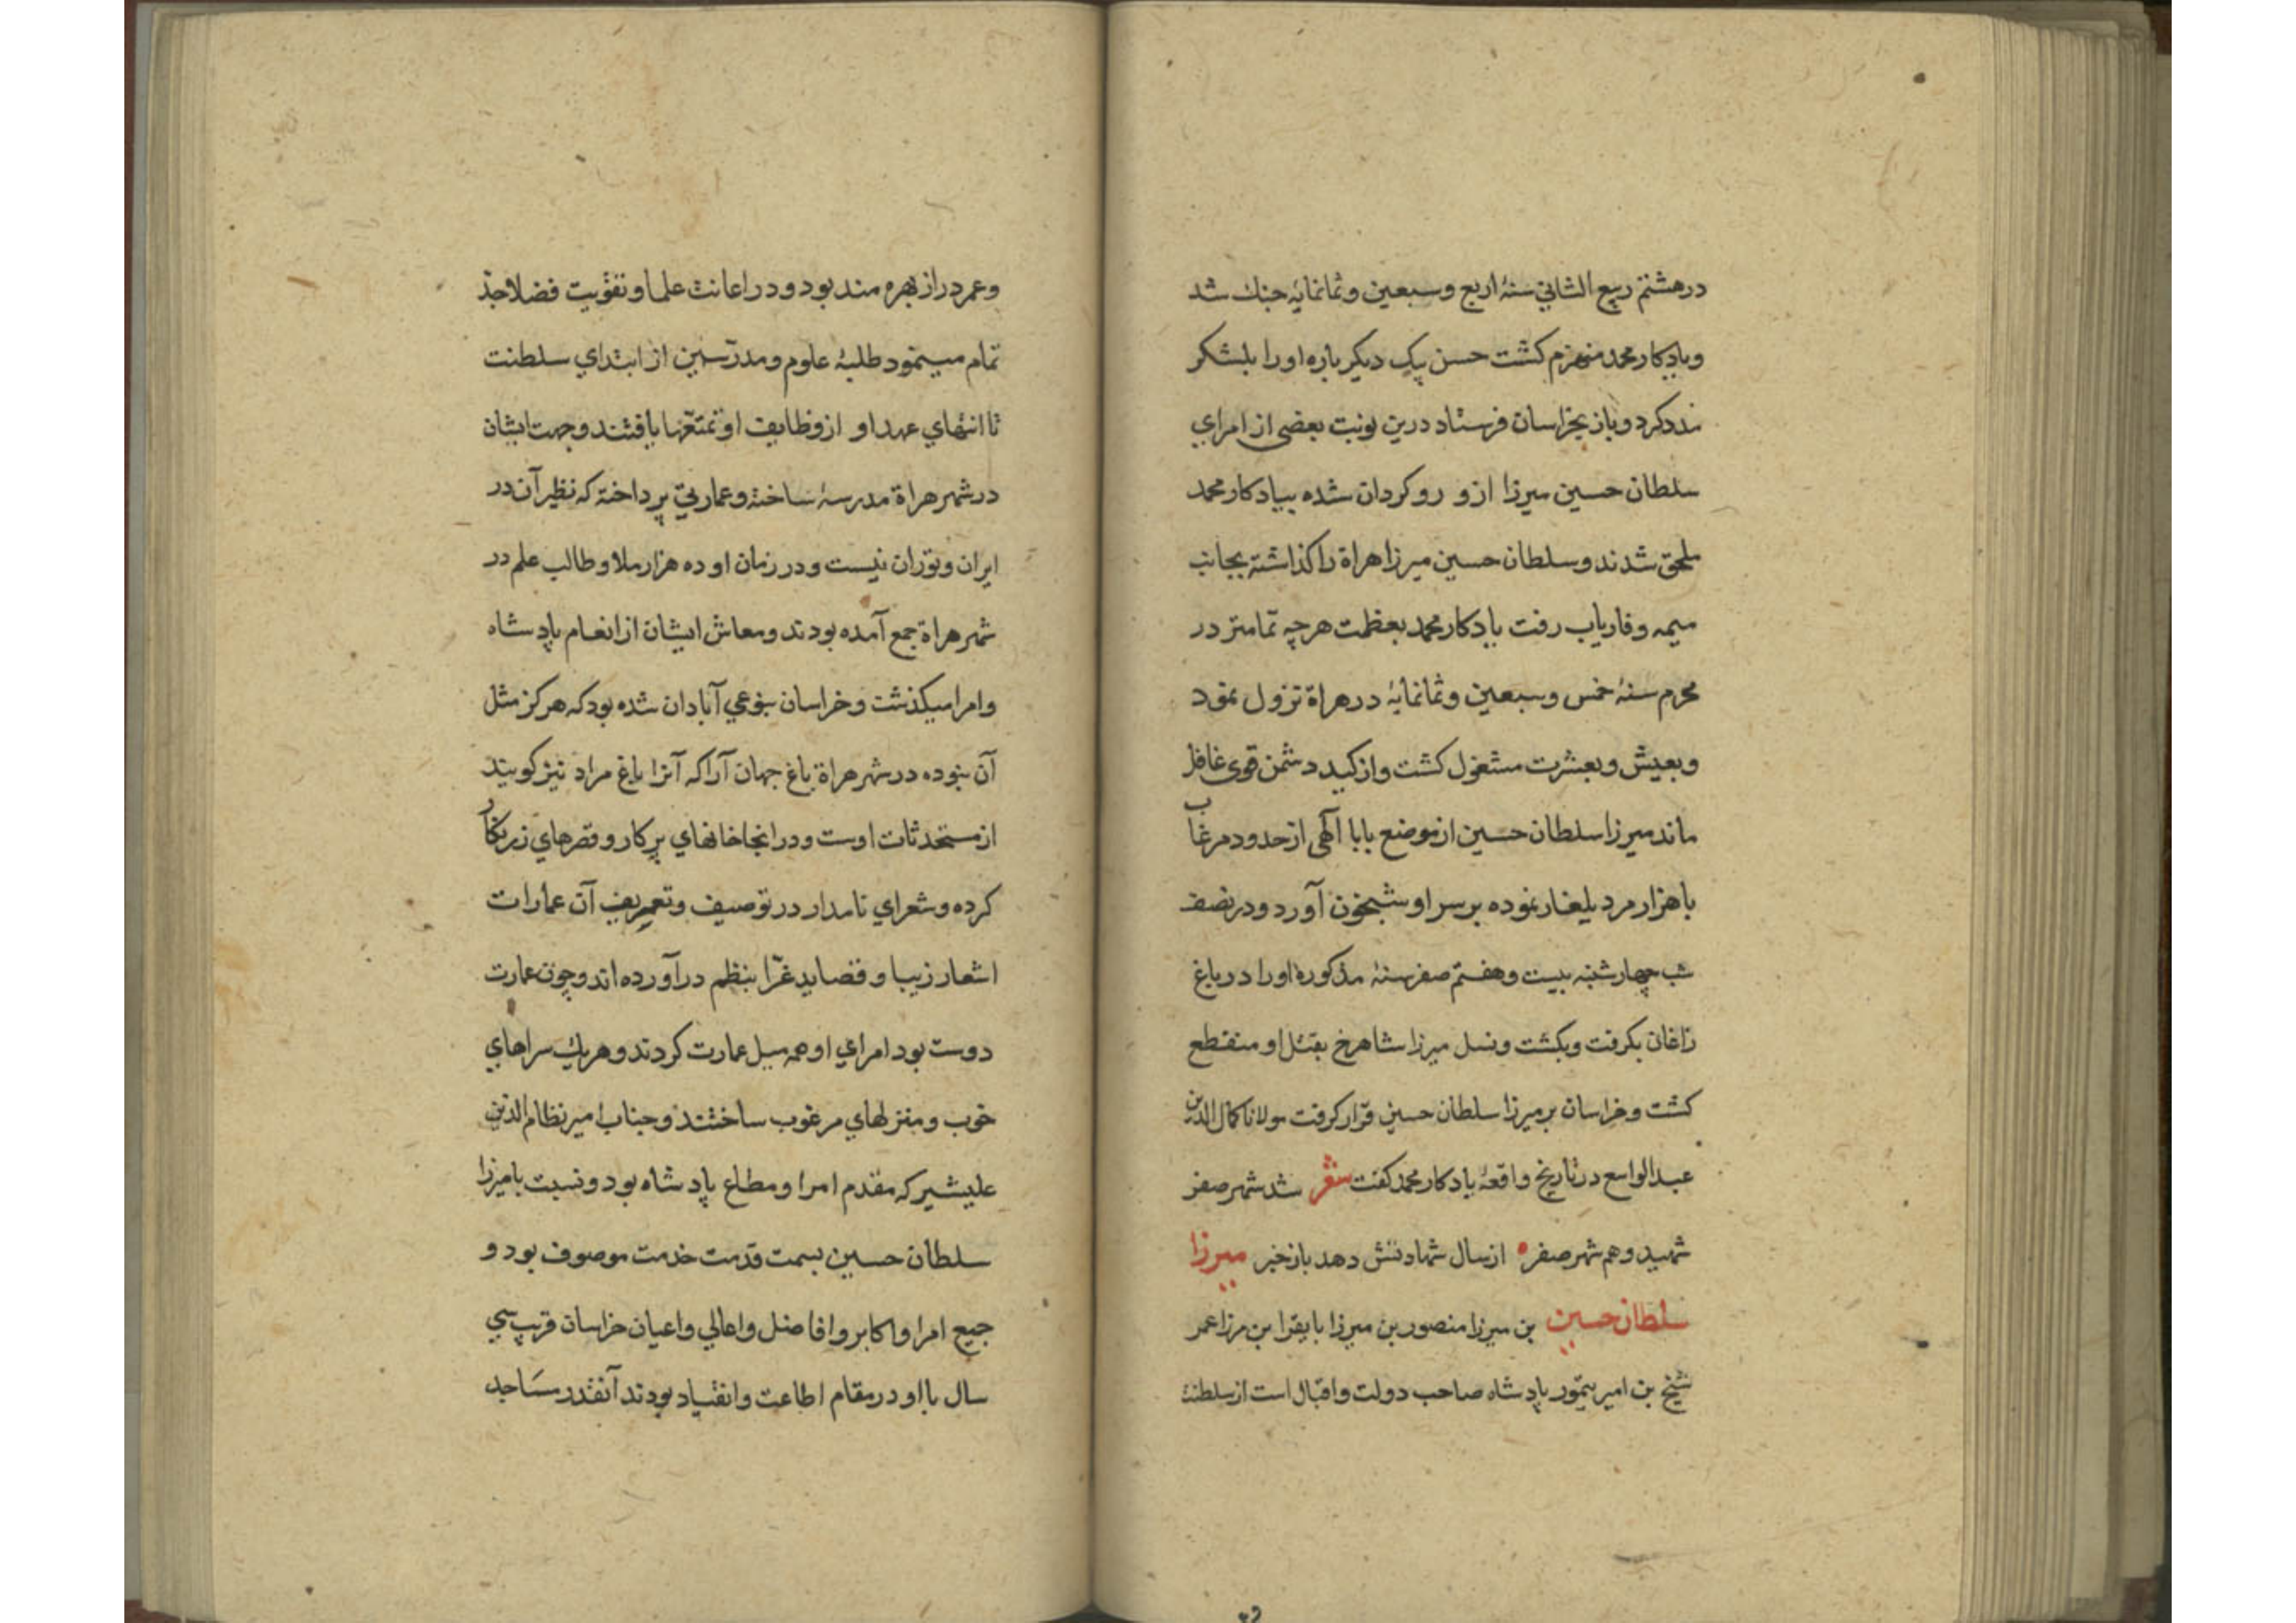 درهشتم ربیع الثانی سنهٔ اربع وسبعین وثمانمایهٔ جنك شد
ویادکار محمد منهزم کشت حسن پیک دیکر باره اورا بلشکر
مدد کرد وباز بخراسان فرستاد درین نوبت بعضی از امرای
سلطان حسین میرزا ازو روکردان شده بیادکار محمد
ملحق شدند وسلطان حسین میرزا هراة را کذاشته بجانب
میمه وفاریاب رفت یادکار محمد بعظمت هرچه تمامتر در
محرم سنهٔ خمس وسبعین وثمانمایهٔ درهراة نزول نمود
وبعیش وبعشرت مشغول کشت واز کید دشمن قوی غافل
ماند میرزا سلطان حسین از موضع بابا آلهی از حدود مرغاب
باهزار مرد یلغار نموده برسر او شبخون آورد ودر نصف
شب چهارشنبه بیست وهفتم صفر سنهٔ مذکوره اورا در باغ
زاغان بکرفت وبکشت ونسل میرزا شاهرخ بقتل او منقطع
کشت وخراسان بر میرزا سلطان حسین قرار کرفت مولانا کمال الدین
عبدالواسع درتاریخ واقعهٔ یادکار محمد کفت شعر شد شهر صفر
شهید وهم شهر صفر ازسال شهادتش دهد باز خبر میرزا
سلطان حسین بن میرزا منصور بن میرزا بایقرا بن مرزا عمر
شیخ بن امیر تیمور پادشاه صاحب دولت واقبال است از سلطنت
وعمر دراز بهره مند بود ودر اعانت علما وتقویت فضلا جدّ
تمام مینمود طلبهٔ علوم ومدرّسین از ابتدای سلطنت
تا انتهای عهد او از وظایف او تمتعها یافتند وجهت ایشان
در شهر هراة مدرسهٔ ساخته وعمارتی پرداخته که نظیر آن در
ایران وتوران نیست ودر زمان او ده هزار ملا وطالب علم در
شهر هراة جمع آمده بودند ومعاش ایشان از انعام پادشاه
وامرا میکذشت وخراسان بنوعی آبادان شده بود که هرکز مثل
آن نبوده در شهر هراة باغ جهان آرا که آنرا باغ مراد نیز کویند
از مستحدثات اوست ودر انجا خانهای پرکار وقصرهای زرنکار
کرده وشعرای نامدار در توصیف وتعریف آن عمارات
اشعار زیبا وقصاید غرّا بنظم درآورده اند وچون عمارت
دوست بود امرای او همه میل عمارت کردند وهریك سراهای
خوب ومنزلهای مرغوب ساختند وجناب امیر نظام الدین
علیشیر که مقدم امرا ومطاع پادشاه بود ونسبت بامیرزا
سلطان حسین بسمت قدمت خدمت موصوف بود و
جمیع امرا واکابر وافاضل واعالی واعیان خراسان قریب سی
سال بااو در مقام اطاعت وانقیاد بودند آنقدر مساجد